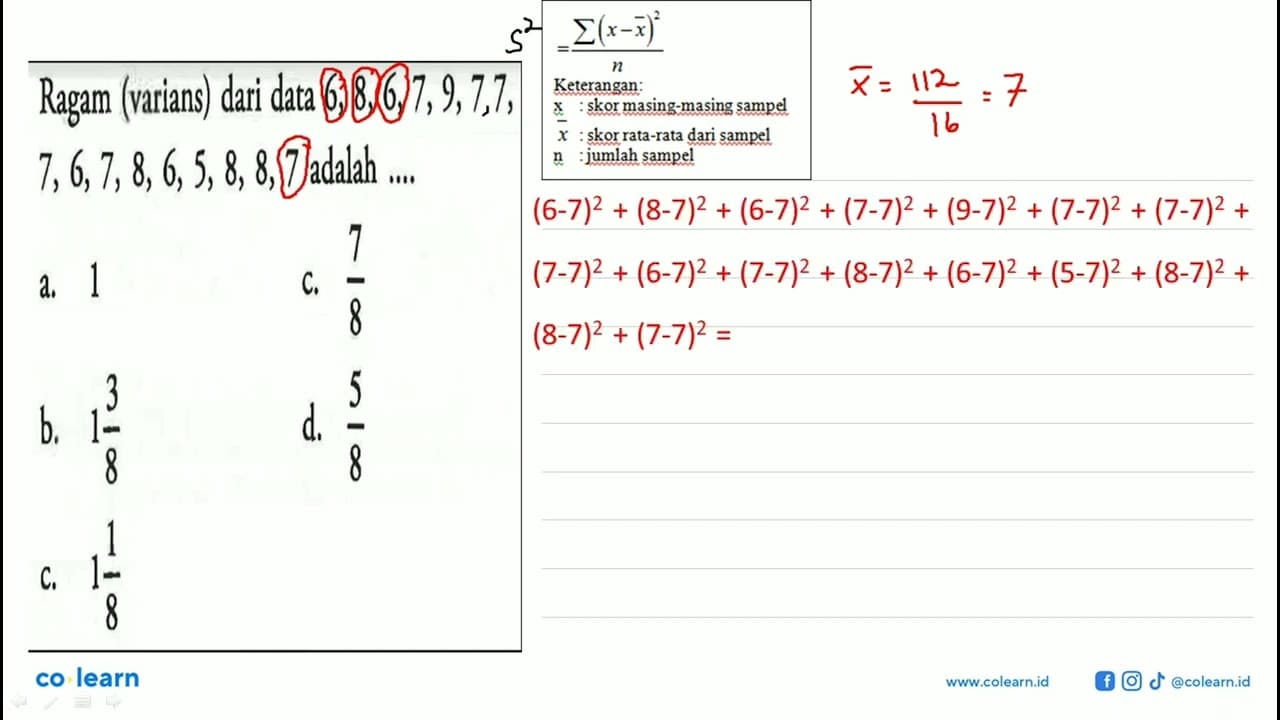 Ragam (varians) dari data 6, 8, 6, 7, 9, 7, 7,
7, 6, 7, 8, 6, 5, 8, 8, 7 adalah ....
a. 1
c. 7/8
b. 1 3/8
d. 5/8
c. 1 1/8
S² = ∑(x-x̄)²/n
Keterangan:
x : skor masing-masing sampel
x̄ : skor rata-rata dari sampel
n : jumlah sampel
x̄ = 112/16 = 7
(6-7)² + (8-7)² + (6-7)² + (7-7)² + (9-7)² + (7-7)² + (7-7)² +
(7-7)² + (6-7)² + (7-7)² + (8-7)² + (6-7)² + (5-7)² + (8-7)² +
(8-7)² + (7-7)² =
co learn
www.colearn.id
@colearn.id